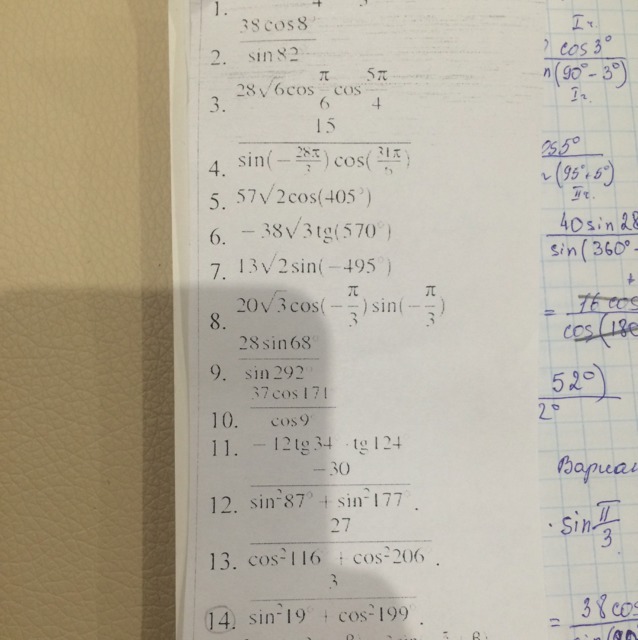 1.
2. 38cos8° / sin82
3. 28√6cos π/6 cos 5π/4
4. 15 / sin(−28π/3)cos(31π/6)
5. 57√2cos(405°)
6. −38√3tg(570°)
7. 13√2sin(−495°)
8. 20√3cos(−π/3)sin(−π/3)
9. 28sin68° / sin292°
10. 37cos171° / cos9°
11. −12tg34° · tg124
12. −30 / sin²87° + sin²177° .
13. 27 / cos²116 + cos²206 .
14. 3 / sin²19° + cos²199° .
I ч.
cos3°
(90°−3°)
I ч.
5°
(95°+5°)
II ч.
40sin28
sin(360°-
= 76 cos
cos(180
52°)
2°
Вариан
· sin π/3
= 38cos